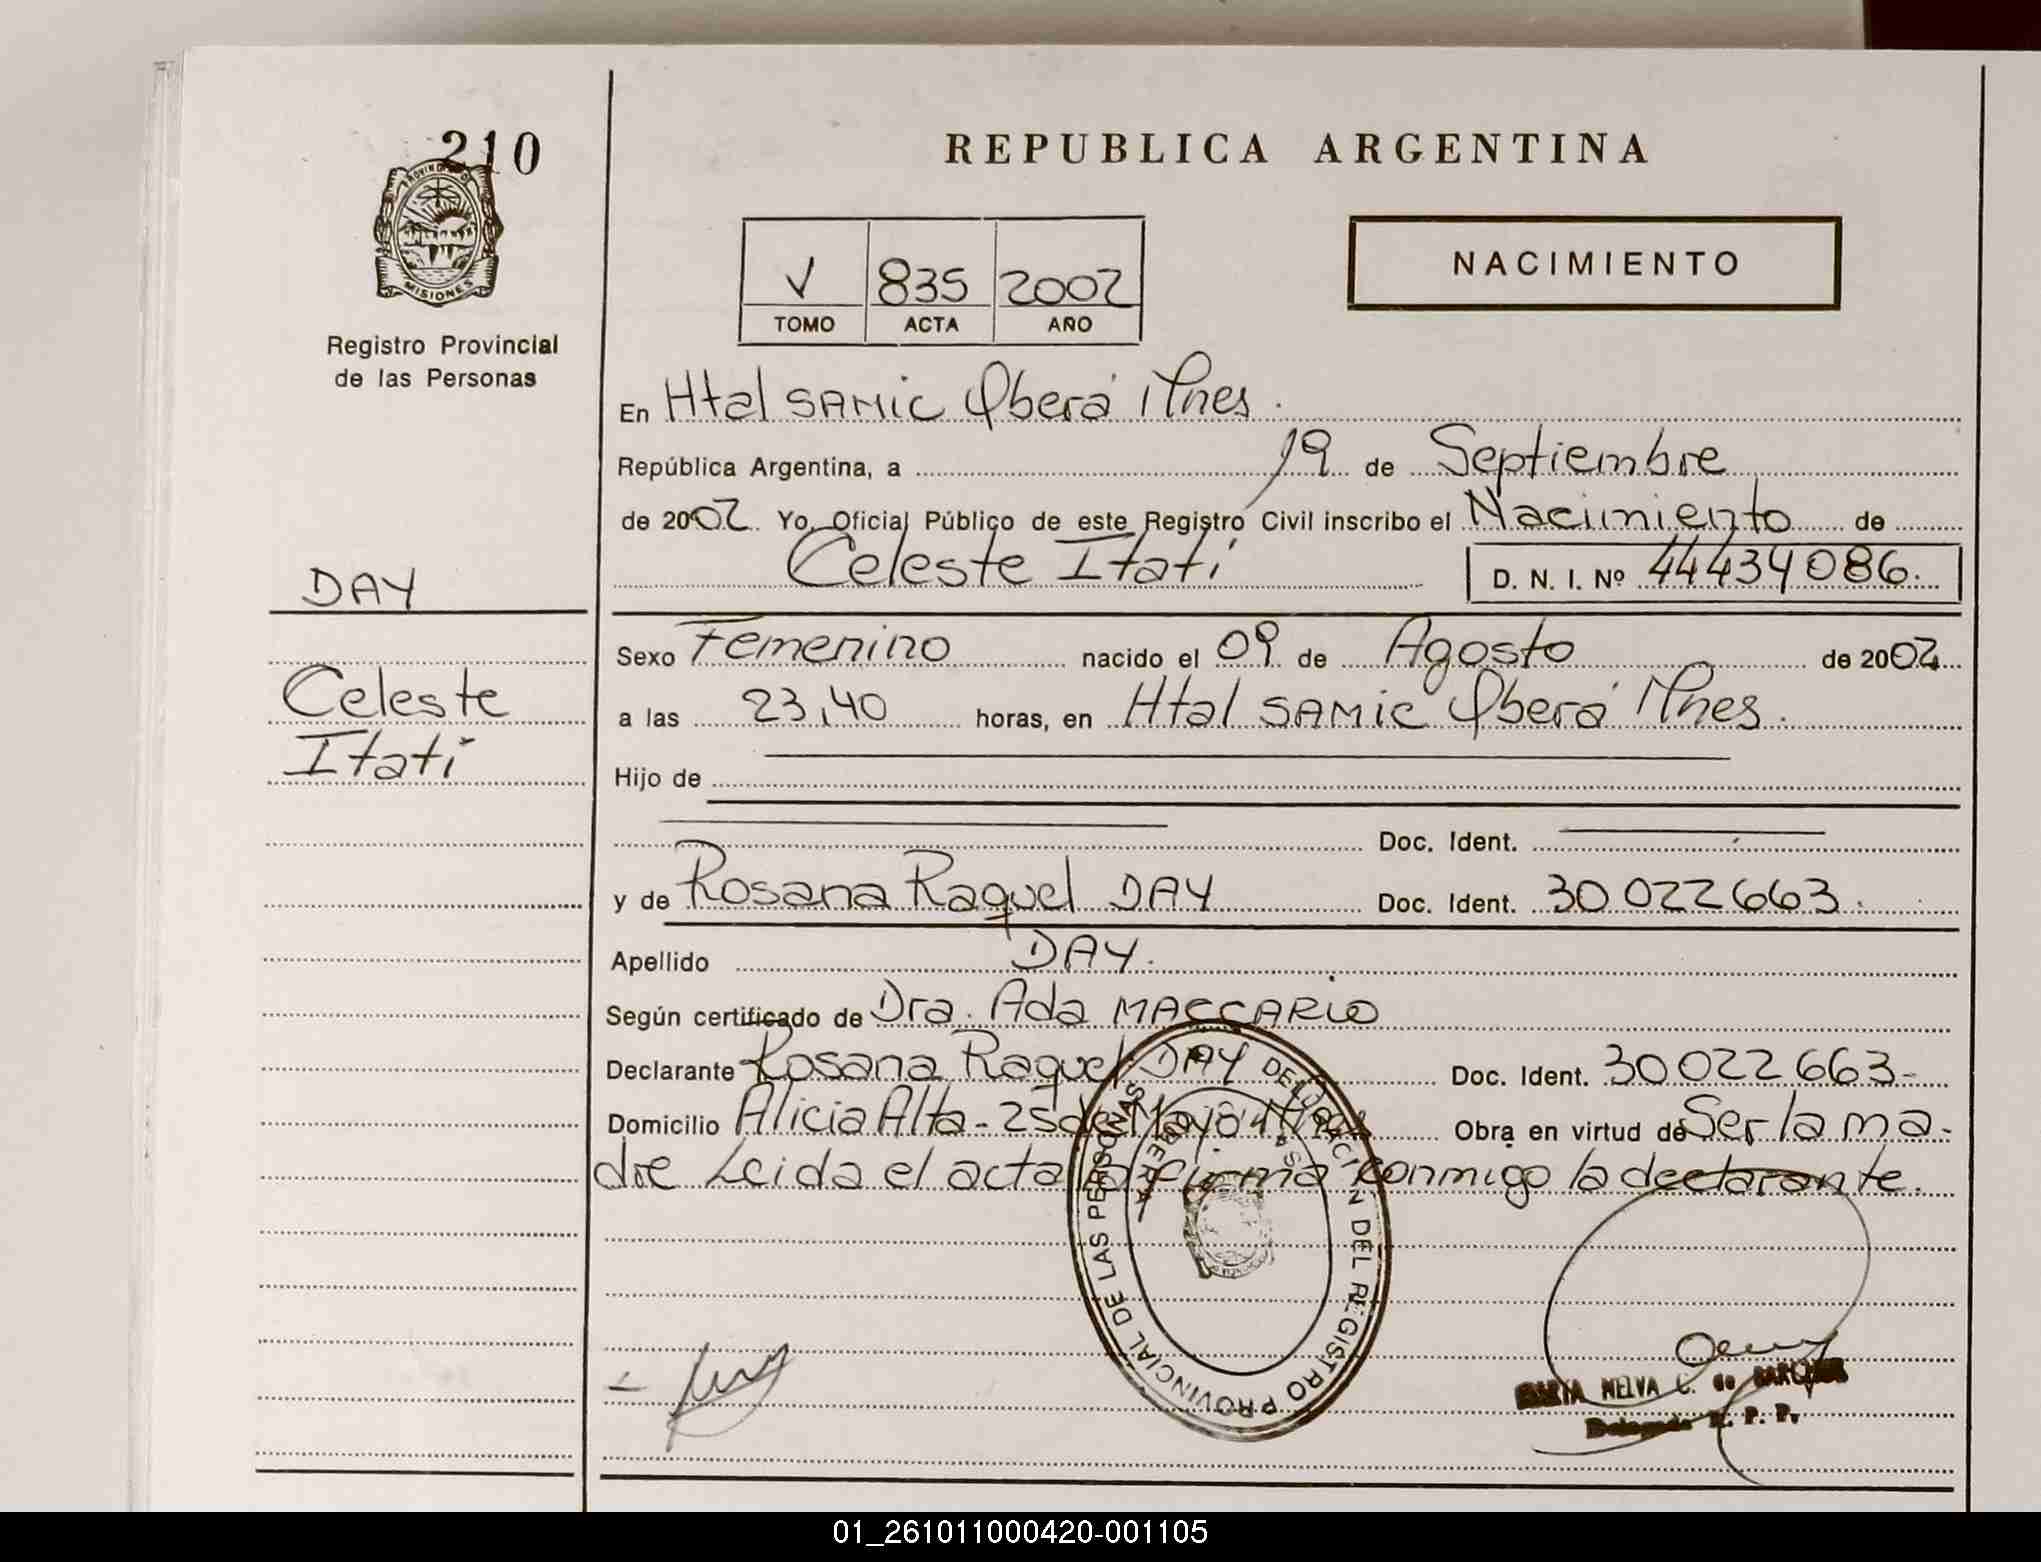 210
PROVINCIA DE
MISIONES
Registro Provincial
de las Personas
REPUBLICA ARGENTINA
V 835 2002
TOMO ACTA AÑO
NACIMIENTO
En Htal SAMIC Oberá Mnes.
República Argentina, a 19 de Septiembre
de 2002 Yo, Oficial Público de este Registro Civil inscribo el Nacimiento de
Celeste Itatí
D. N. I. Nº 44434086.
DAY
Celeste
Itatí
Sexo Femenino nacido el 09 de Agosto de 2002
a las 23,40 horas, en Htal SAMIC Oberá Mnes.
Hijo de
Doc. Ident.
y de Rosana Raquel DAY Doc. Ident. 30022663.
Apellido DAY.
Según certificado de Dra. Ada MACCARIO
Declarante Rosana Raquel DAY Doc. Ident. 30022663-
Domicilio Alicia Alta - 25 de Mayo Mnes Obra en virtud de Ser la ma-
dre Leida el acta la firma conmigo la declarante.
DELEGACION DEL REGISTRO PROVINCIAL DE LAS PERSONAS
MARIA NELVA C. de
Delegada R. P. P.
01_261011000420-001105